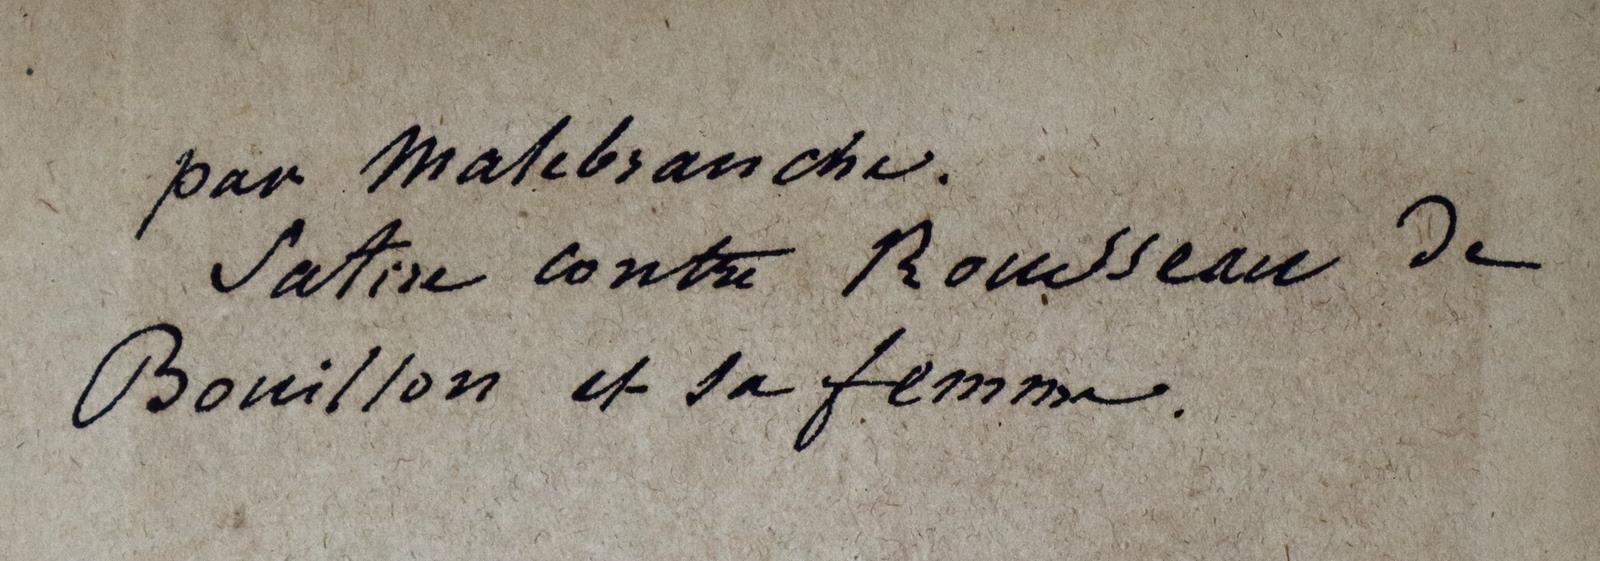 par Malebranche.
Satire contre Rousseau De
Bouillon et sa femme.